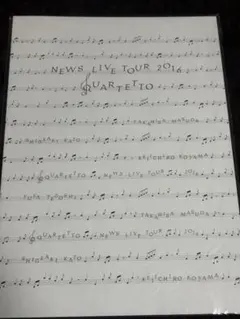 NEWS LIVE TOUR 2016
QUARTETTO
TAKAHISA MASUDA
SHIGEAKI KATO KEIICHIRO KOYAMA
QUARTETTO NEWS LIVE TOUR 2016
YUYA TEGOSHI TAKAHISA MASUDA
QUARTETTO NEWS LIVE TOUR 2016
SHIGEAKI KATO
KEIICHIRO KOYAMA